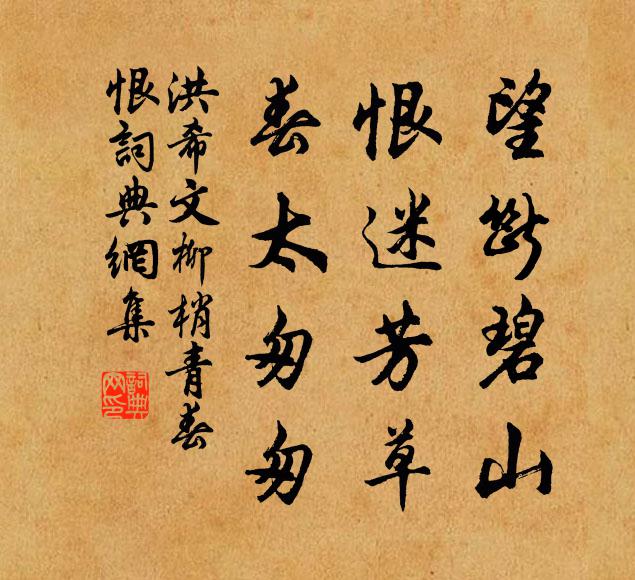 望斷碧山
恨迷芳草
春太匆匆
洪希文柳梢青春
恨詞典網集
詞典
网印